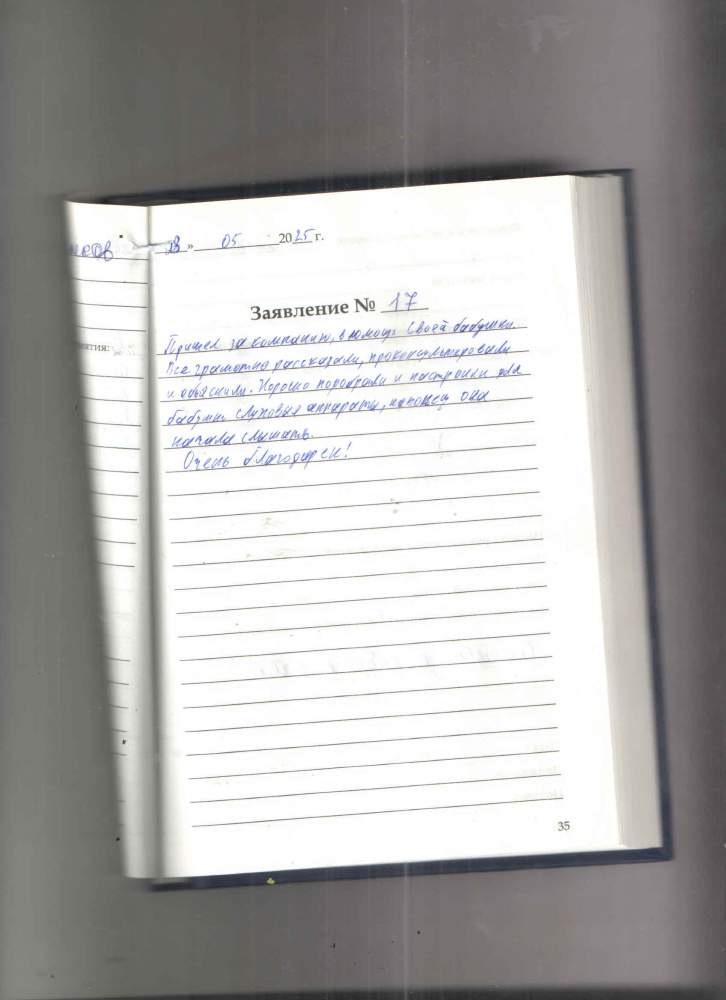 нков
23 » 05 2025 г.
Заявление № 17
ятия:
Пришел за компанию, в помощь своей бабушки.
Все грамотно рассказали, проконсультировали
и объяснили. Хорошо подобрали и настроили для
бабушки слуховые аппараты, наконец она
начала слышать.
Очень благодарен!
35